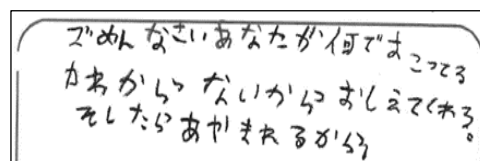 ごめんなさいあなたが何でおこってる
かわからないからおしえてくれる。
そしたらあやまれるから